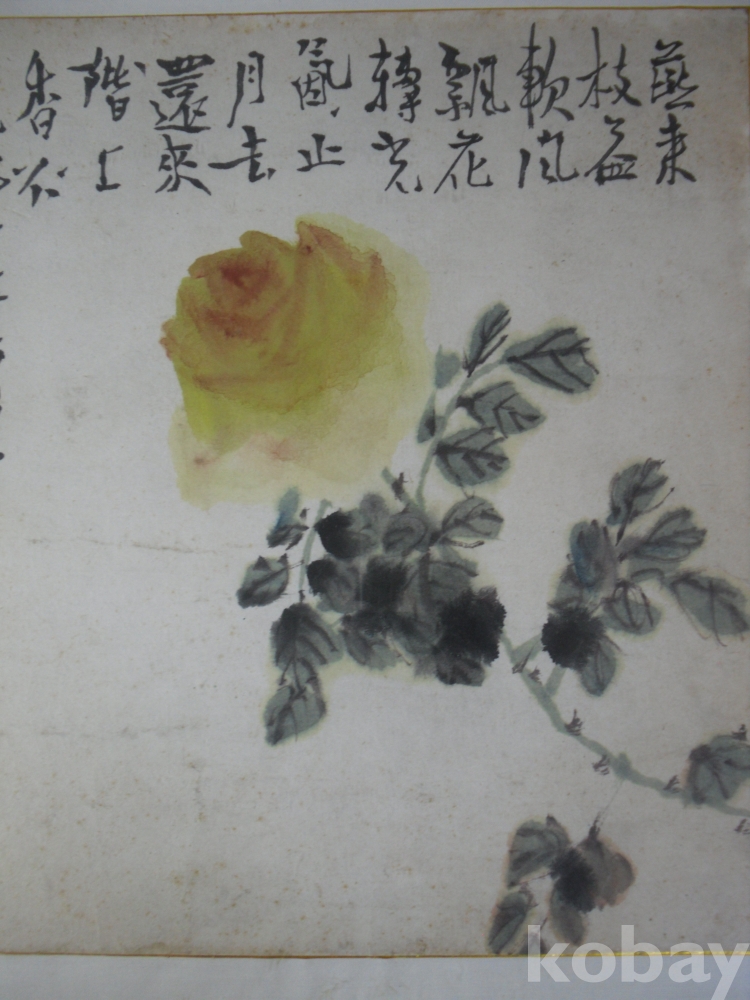 燕来
枝益
軟風
飄花
轉光
氤止
月去
還來
階上
香不
kobay